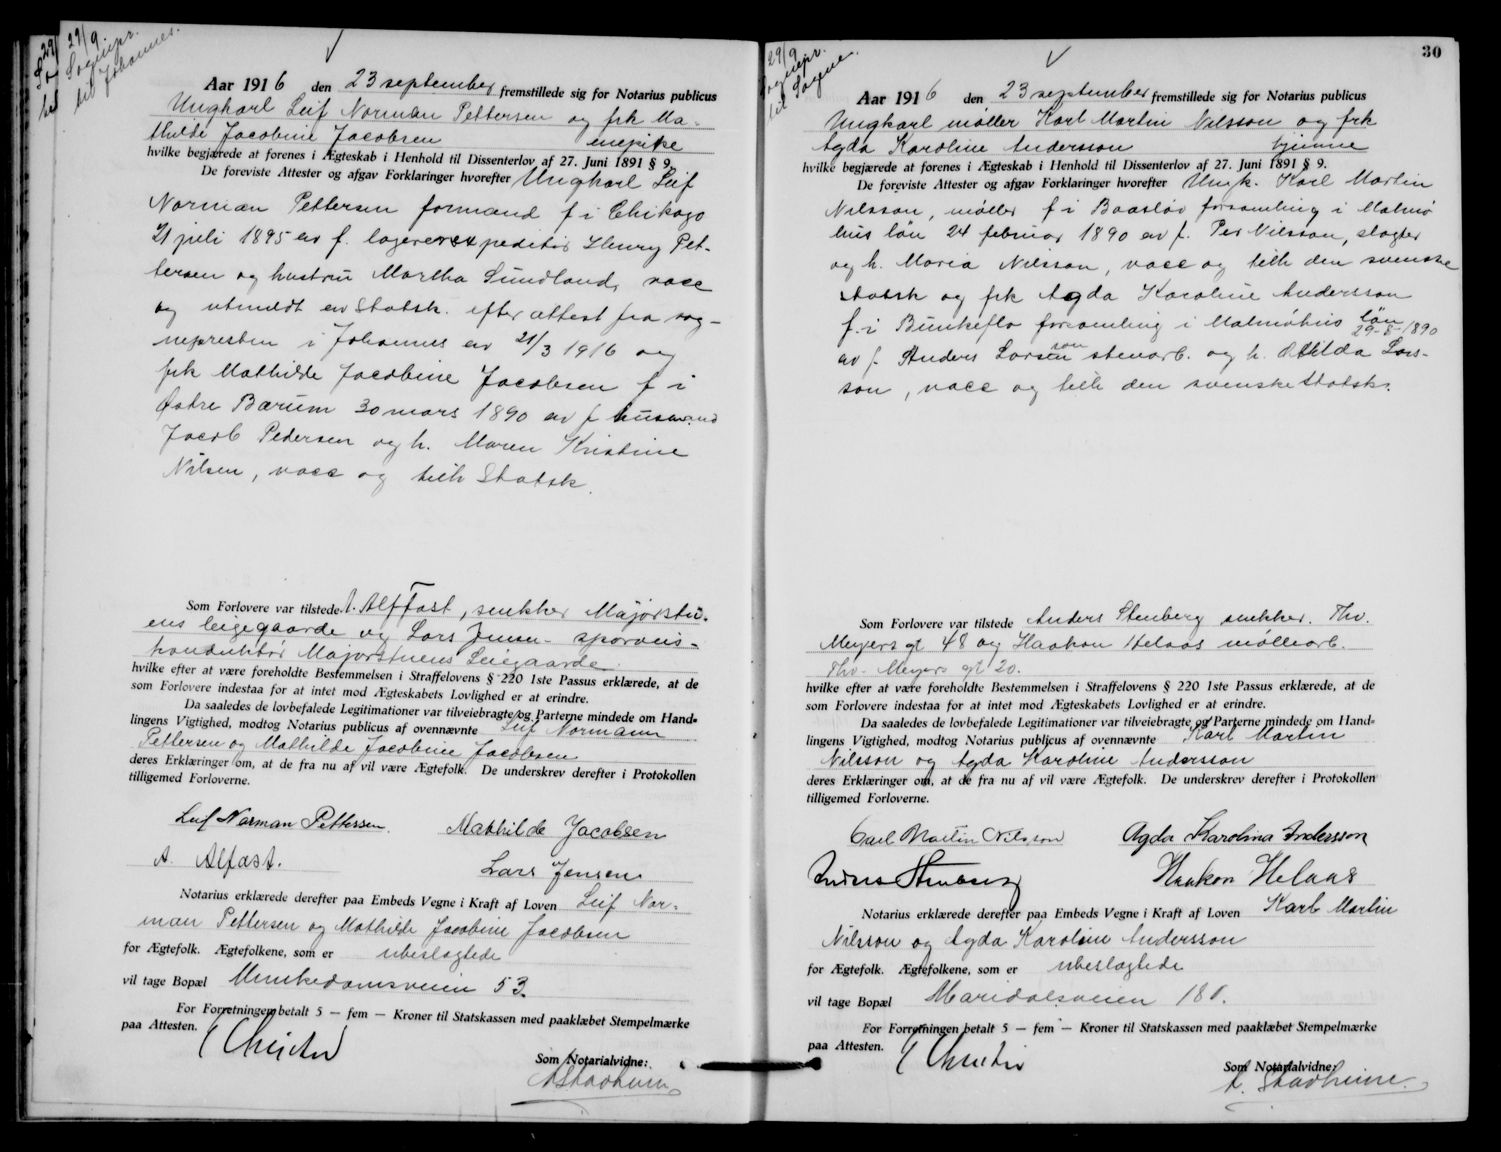 29/9
Sognepr.
til Johannes.
Aar 1916 den 23 september fremstillede sig for Notarius publicus
Ungkarl Leif Norman Pettersen og frk Ma-
thilde Jacobine Jacobsen enepike
hvilke begjærede at forenes i Ægteskab i Henhold til Dissenterlov af 27. Juni 1891 § 9.
De foreviste Attester og afgav Forklaringer hvorefter Ungkarl Leif
Norman Pettersen formand f i Chikago
21 juli 1895 av f. lagerexpeditør Henry Pet-
tersen og hustru Martha Sundland, vacc
og utmeldt av Statsk. efter attest fra sog-
nepresten i Johannes av 21/3 1916 og
frk Mathilde Jacobine Jacobsen f i
Østre Bærum 30 mars 1890 av f husmand
Jacob Pedersen og h. Maren Kristine
Nilsen, vacc og tilh Statsk.
Som Forlovere var tilstede A. Alfast, snekker Majorstu-
ens leiegaarde og Lars Jensen - sporveis-
konduktør Majorstuens Leiegaarde.
hvilke efter at være foreholdte Bestemmelsen i Straffelovens § 220 1ste Passus erklærede, at de
som Forlovere indestaa for at intet mod Ægteskabets Lovlighed er at erindre.
Da saaledes de lovbefalede Legitimationer var tilveiebragte og Parterne mindede om Hand-
lingens Vigtighed, modtog Notarius publicus af ovennævnte Leif Normann
Pettersen og Mathilde Jacobine Jacobsen
deres Erklæringer om, at de fra nu af vil være Ægtefolk. De underskrev derefter i Protokollen
tilligemed Forloverne.
Leif Norman Pettersen. Mathilde Jacobsen
A. Alfast. Lars Jensen
Notarius erklærede derefter paa Embeds Vegne i Kraft af Loven Leif Nor-
man Pettersen og Mathilde Jacobine Jacobsen
for Ægtefolk. Ægtefolkene, som er ubeslægtede
vil tage Bopæl Munkedamsveien 53.
For Forretningen betalt 5 — fem — Kroner til Statskassen med paaklæbet Stempelmærke
paa Attesten.
Som Notarialvidne:
A Stadheim
30
29/9
Sognepr.
til Sogne.
Aar 1916 den 23 september fremstillede sig for Notarius publicus
Ungkarl møller Karl Martin Nilsson og frk
Agda Karoline Andersson hjemme
hvilke begjærede at forenes i Ægteskab i Henhold til Dissenterlov af 27. Juni 1891 § 9.
De foreviste Attester og afgav Forklaringer hvorefter Ungk. Karl Martin
Nilsson, møller f i Baaslöv forsamling i Malmö
hus län 24 februar 1890 av f. Per Nilsson, slagter
og h. Maria Nilsson, vacc og tilh den svenske
statsk og frk Agda Karoline Andersson
f. i Bunkeflo forsamling i Malmöhus län
29-8-1890
av f. Anders Larsson stenarb. og h. Othilda Lars-
son, vacc og tilh den svenske Statsk.
Som Forlovere var tilstede Anders Stenberg snekker. Thv.
Meyers gt 48 og Haakon Helaas møllearb.
Thv. Meyers gt 20.
hvilke efter at være foreholdte Bestemmelsen i Straffelovens § 220 1ste Passus erklærede, at de
som Forlovere indestaa for at intet mod Ægteskabets Lovlighed er at erindre.
Da saaledes de lovbefalede Legitimationer var tilveiebragte og Parterne mindede om Hand-
lingens Vigtighed, modtog Notarius publicus af ovennævnte Karl Martin
Nilsson og Agda Karoline Andersson
deres Erklæringer om, at de fra nu af vil være Ægtefolk. De underskrev derefter i Protokollen
tilligemed Forloverne.
Carl Martin Nilsson Agda Karolina Andersson
Anders Stenberg Haakon Helaas
Notarius erklærede derefter paa Embeds Vegne i Kraft af Loven Karl Martin
Nilsson og Agda Karoline Andersson
for Ægtefolk. Ægtefolkene, som er ubeslægtede
vil tage Bopæl Maridalsveien 180.
For Forretningen betalt 5 — fem — Kroner til Statskassen med paaklæbet Stempelmærke
paa Attesten.
Som Notarialvidne:
A. Stadheim.